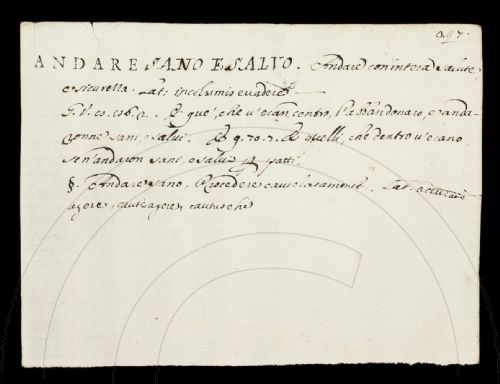 297.
ANDARE SANO E SALVO. Andare con intera salute,
e sicurezza. Lat: incolumis evadere
G. V. 10. 118. 2. E que', che v'eran entro, l'abbandonaro, e anda-
ronne sani, e salvi. E 9. 70. 3. E quelli, che dentro v'erano,
se n'andaron sani, e salvi p patti.
§. Andare sano, Procedere cautelatamente. Lat: accurate
agere, caute agere, cautus